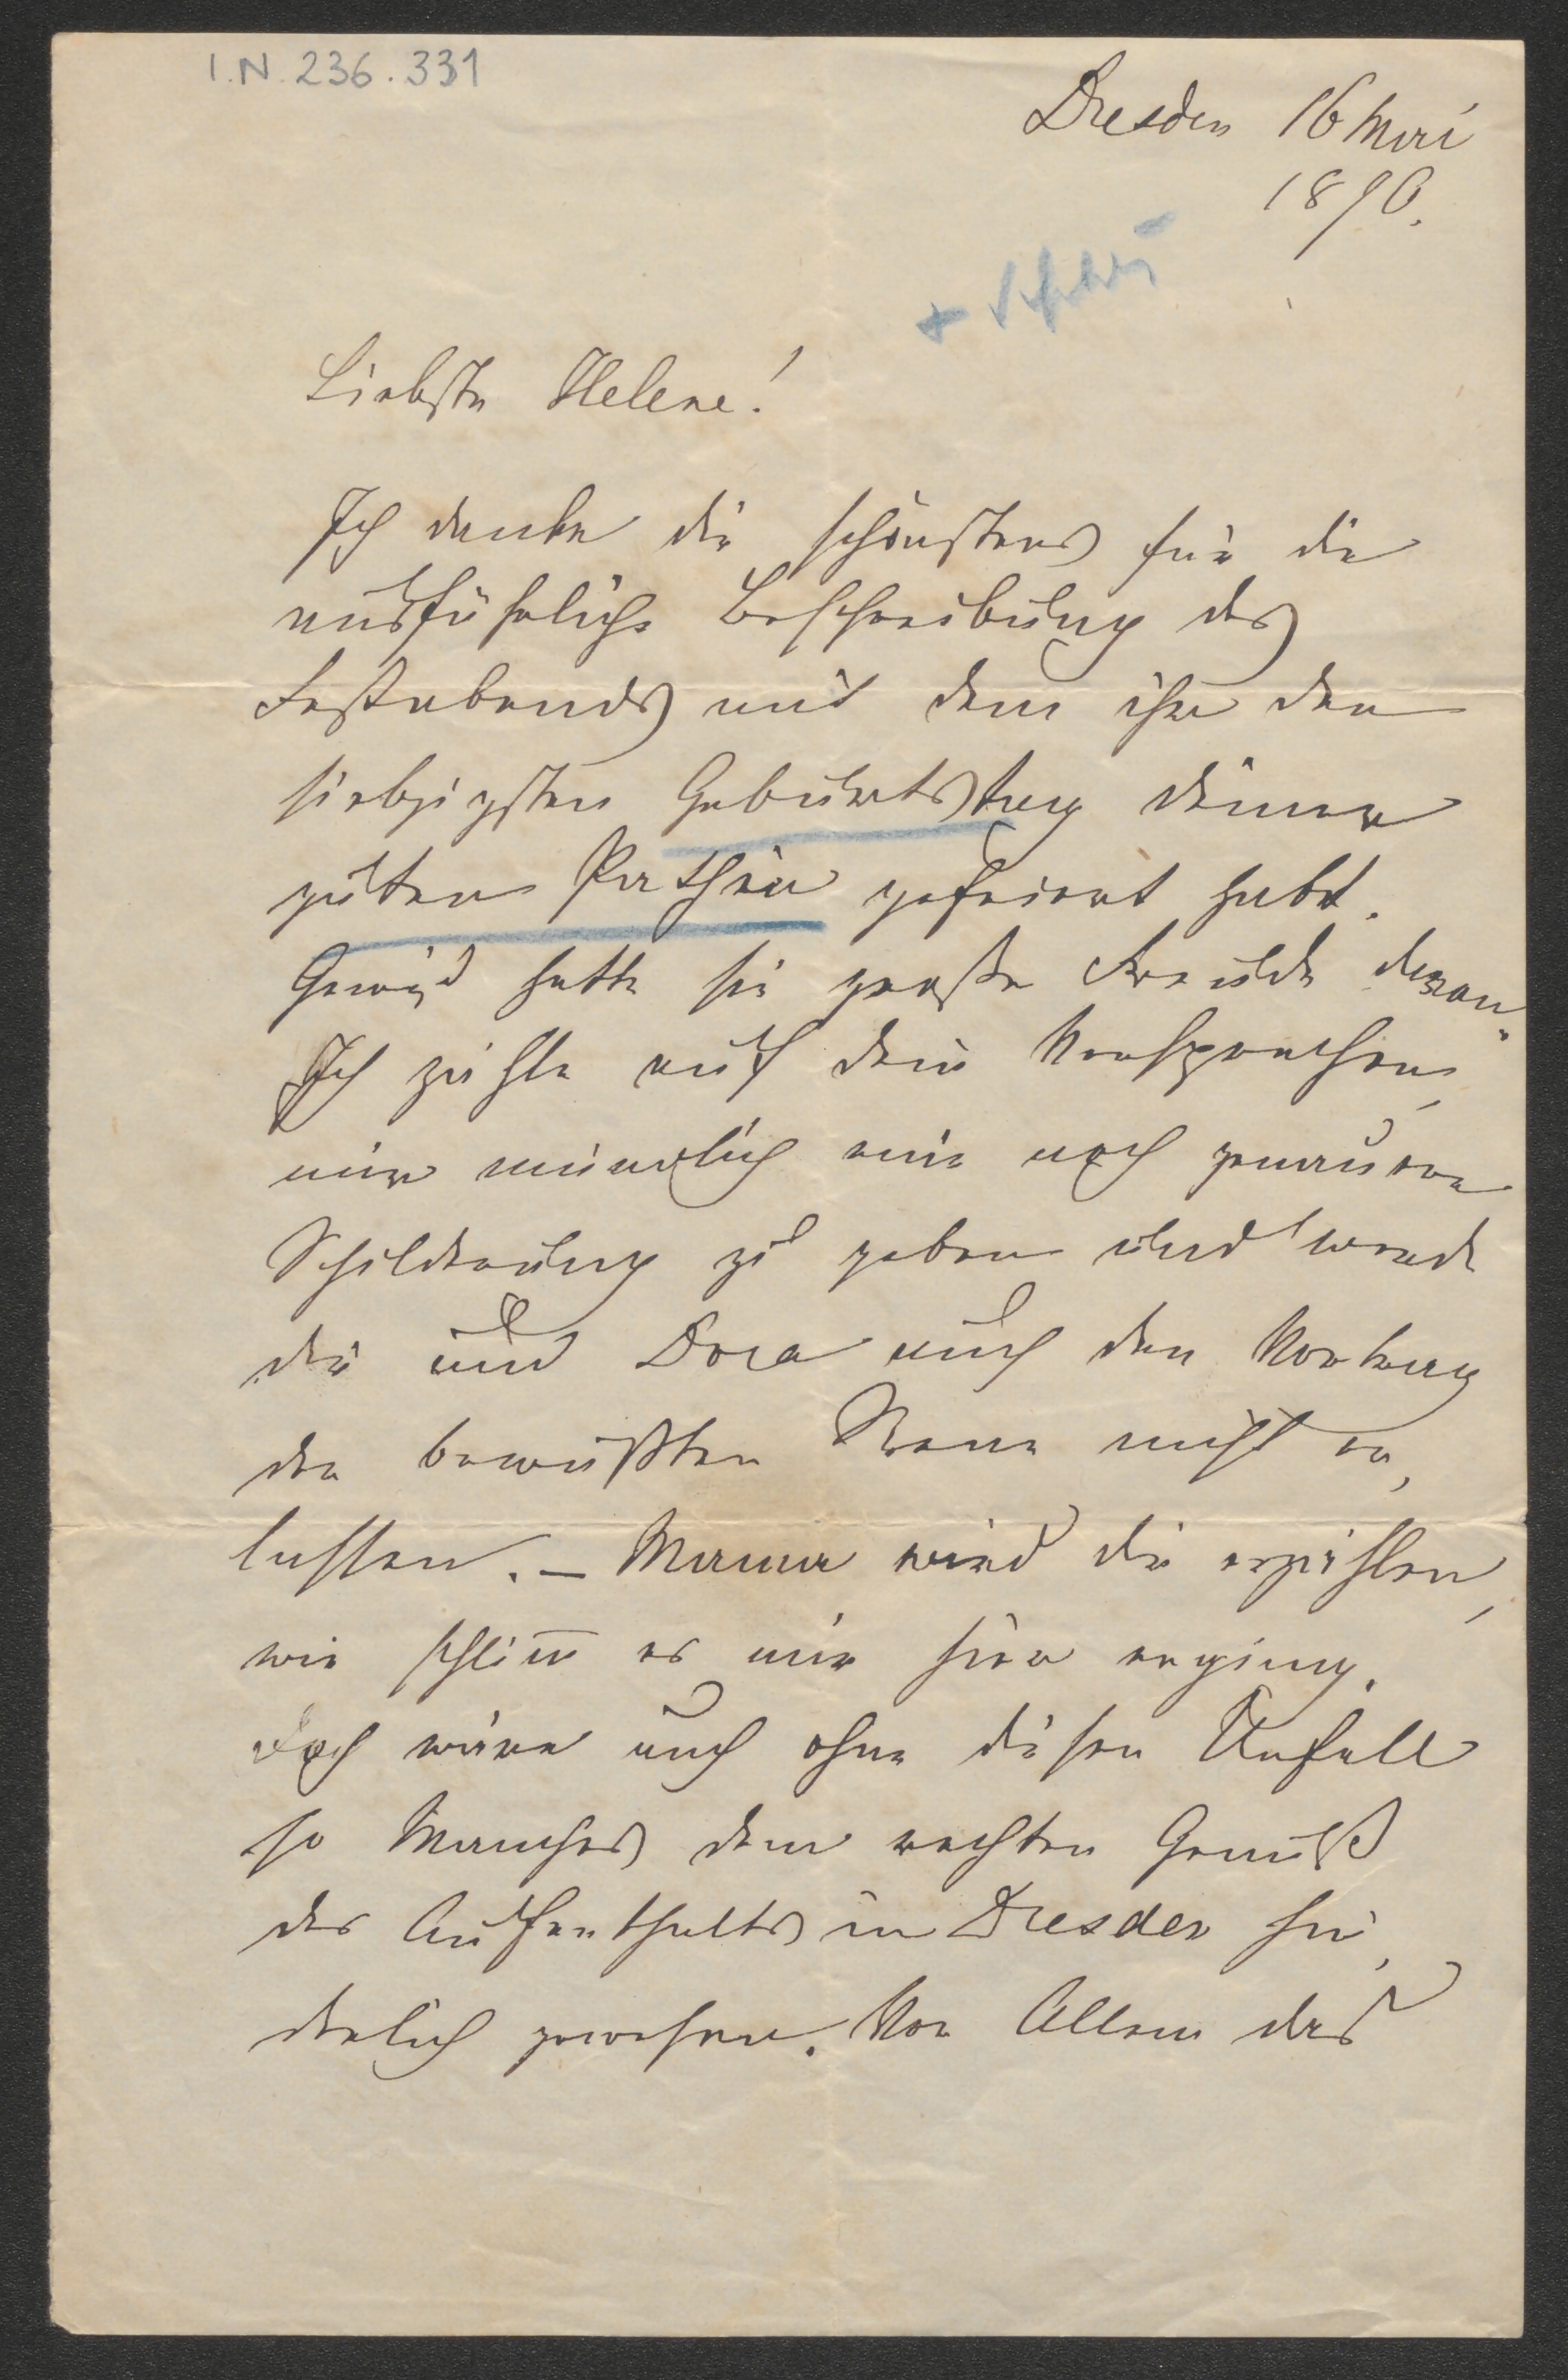 I.N. 236.331
Dresden 16 Mai
1890.
Liebste Helene!
Ich danke dir schönstens für die
ausführliche Beschreibung des
Festabends mit dem ihr den
siebzigsten Geburtstag deiner
guten Pathin gefeiert habt.
Gewiß hatte sie große Freude daran.
Ich zähle auf dein Versprechen,
mir mündlich eine noch genauere
Schilderung zu geben und werde
dir und Dora auch den Vortrag
der bewußten Scene nicht er-
lassen. – Mama wird dir erzählen,
wie schlim̅ es mir hier erging.
Doch wäre auch ohne diesen Unfall
so Manches dem rechten Genuß
des Aufenthalts in Dresden hin-
derlich gewesen. Vor Allem das